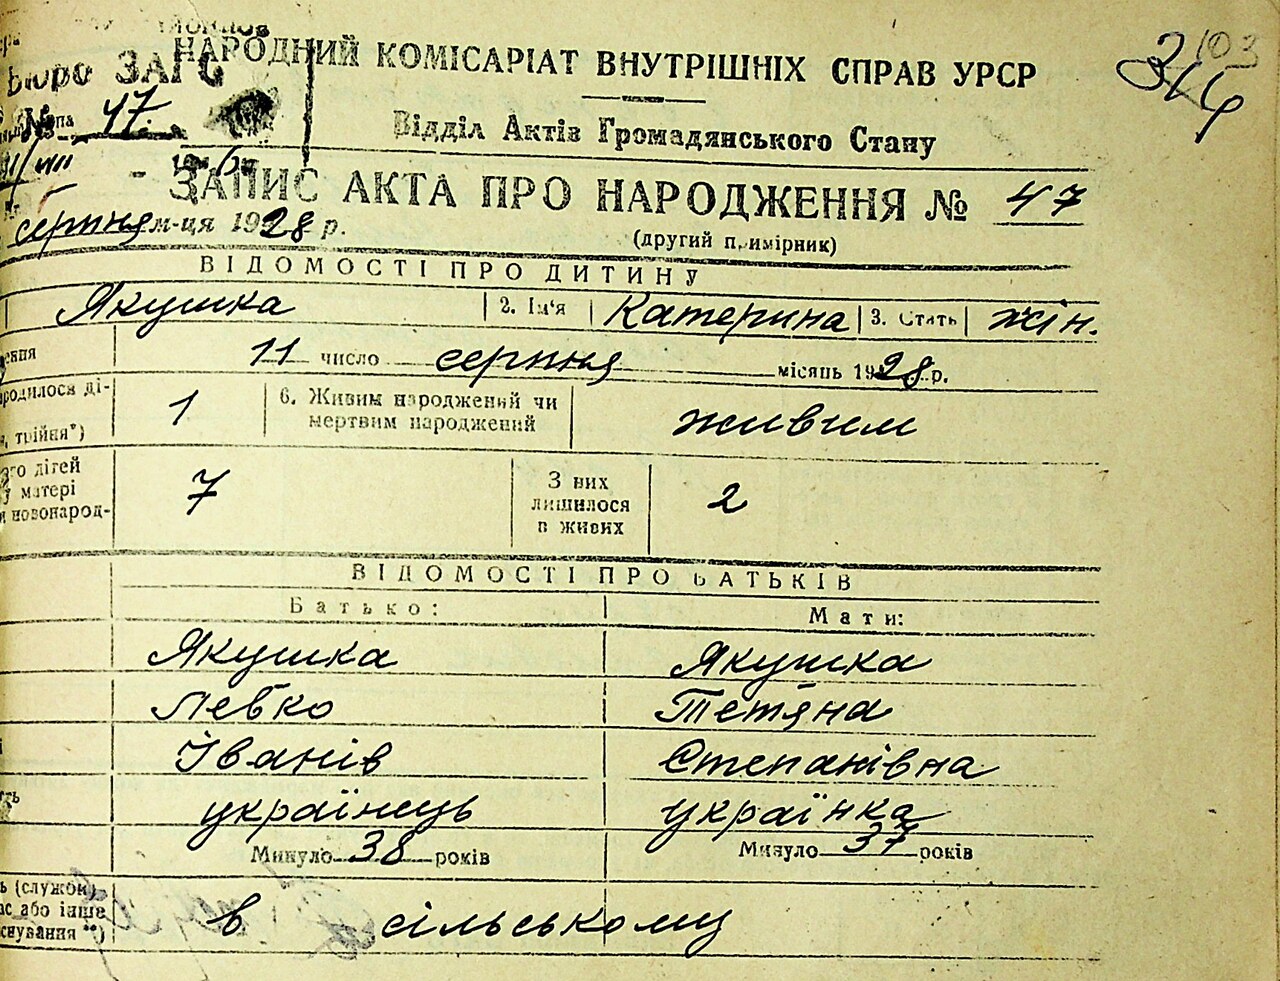 103
314
НАРОДНИЙ КОМІСАРІАТ ВНУТРІШНІХ СПРАВ УРСР
Бюро ЗАГС
№ 47
Відділ Актів Громадянського Стану
ЗАПИС АКТА ПРО НАРОДЖЕННЯ № 47
серпня м-ця 1928 р.
(другий примірник)
ВІДОМОСТІ ПРО ДИТИНУ
Якушка 2. Ім'я Катерина 3. Стать жін.
ення 11 число серпня місяць 1928 р.
родилося ді- 1 6. Живим народжений чи живим
, трійня*) мертвим народжений
го дітей 7 З них 2
у матері лишилося
и новонарод- в живих
ВІДОМОСТІ ПРО БАТЬКІВ
Батько: Мати:
Якушка Якушка
Левко Тетяна
Іванів Степанівна
ть українець українка
Минуло 38 років Минуло 37 років
ь (служой)
ас або інше в сільському
снування **)